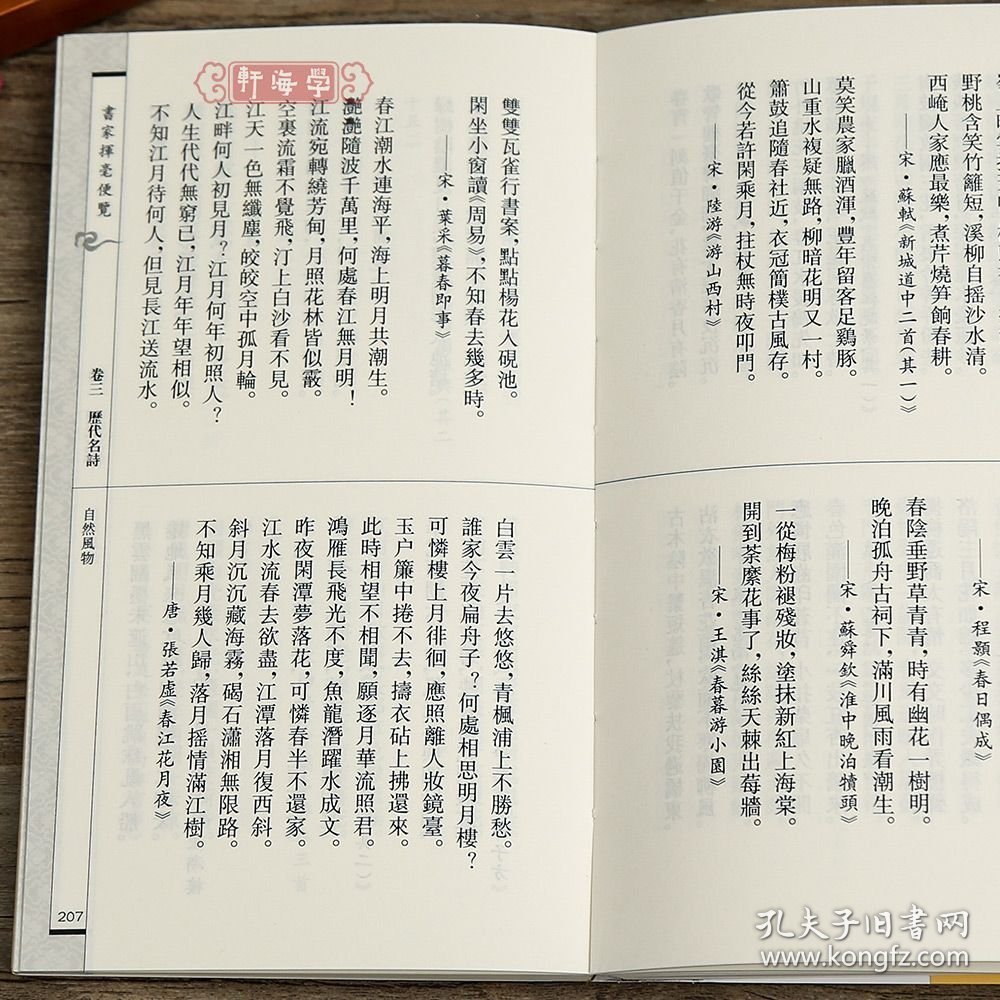 野桃含笑竹籬短，溪柳自摇沙水清。
西崦人家應最樂，煮芹燒笋餉春耕。
——宋·蘇軾《新城道中二首（其一）》
莫笑農家臘酒渾，豐年留客足鷄豚。
山重水複疑無路，柳暗花明又一村。
簫鼓追隨春社近，衣冠簡樸古風存。
從今若許閑乘月，拄杖無時夜叩門。
——宋·陸游《游山西村》
——宋·程顥《春日偶成》
春陰垂野草青青，時有幽花一樹明。
晚泊孤舟古祠下，滿川風雨看潮生。
——宋·蘇舜欽《淮中晚泊犢頭》
一從梅粉褪殘妝，塗抹新紅上海棠。
開到荼縻花事了，絲絲天棘出莓牆。
——宋·王淇《春暮游小園》
雙雙瓦雀行書案，點點楊花入硯池。
閑坐小窗讀《周易》，不知春去幾多時。
——宋·葉采《暮春即事》
春江潮水連海平，海上明月共潮生。
灧灧隨波千萬里，何處春江無月明！
江流宛轉繞芳甸，月照花林皆似霰。
空裏流霜不覺飛，汀上白沙看不見。
江天一色無纖塵，皎皎空中孤月輪。
江畔何人初見月？江月何年初照人？
人生代代無窮已，江月年年望相似。
不知江月待何人，但見長江送流水。
白雲一片去悠悠，青楓浦上不勝愁。
誰家今夜扁舟子？何處相思明月樓？
可憐樓上月徘徊，應照離人妝鏡臺。
玉户簾中捲不去，擣衣砧上拂還來。
此時相望不相聞，願逐月華流照君。
鴻雁長飛光不度，魚龍潛躍水成文。
昨夜閑潭夢落花，可憐春半不還家。
江水流春去欲盡，江潭落月復西斜。
斜月沉沉藏海霧，碣石瀟湘無限路。
不知乘月幾人歸，落月摇情滿江樹。
——唐·張若虚《春江花月夜》
書家揮毫便覽
卷三 歷代名詩
自然風物
207
軒海學
孔夫子旧书网
www.kongfz.com